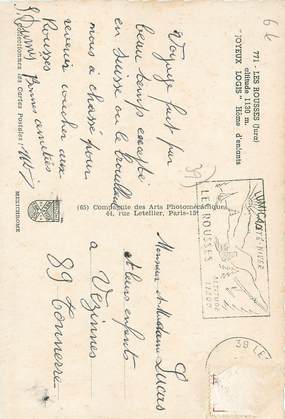 771 - LES ROUSSES (Jura)
altitude 1130 m.
"JOYEUX LOGIS" Home d'enfants
Voyage fait par
beau temps excepté
en Suisse où le brouillard
nous a chassé pour
revenir coucher aux
Rousses
Bonnes amitiés
Sélectionnez des Cartes Postales
MEXICHROME
(65) Compagnie des Arts Photomécaniques
44, rue Letellier, Paris-15
LES ROUSSES
ALTITUDE
Monsieur et Madame Lucas
et leurs enfants
à Vezinnes
89 Tonnerre
39 LE